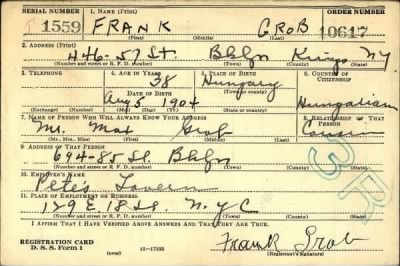 SERIAL NUMBER 1. NAME (Print) ORDER NUMBER
1559 FRANK GROB 10617
(First) (Middle) (Last)
2. ADDRESS (Print)
446-57 St. Bklyn Kings N.Y.
(Number and street or R. F. D. number) (Town) (County) (State)
3. TELEPHONE 4. AGE IN YEARS 5. PLACE OF BIRTH 6. COUNTRY OF CITIZENSHIP
38 Hungary
DATE OF BIRTH (Town or county)
Aug 5 1904 Hungarian
(Exchange) (No.) (Mo.) (Day) (Yr.) (State or country)
7. NAME OF PERSON WHO WILL ALWAYS KNOW YOUR ADDRESS 8. RELATIONSHIP OF THAT PERSON
Mr. Max Grob Cousin
(Mr., Mrs., Miss) (First) (Middle) (Last)
9. ADDRESS OF THAT PERSON
694-85 St. Bklyn
(Number and street or R. F. D. number) (Town) (County) (State)
10. EMPLOYER'S NAME
Petes Tavern
11. PLACE OF EMPLOYMENT OR BUSINESS
129 E. 18 St. N.Y.C
(Number and street or R. F. D. number) (Town) (County) (State)
I AFFIRM THAT I HAVE VERIFIED ABOVE ANSWERS AND THAT THEY ARE TRUE.
REGISTRATION CARD
D. S. S. Form 1 16-17105 Frank Grob
(Registrant's signature)